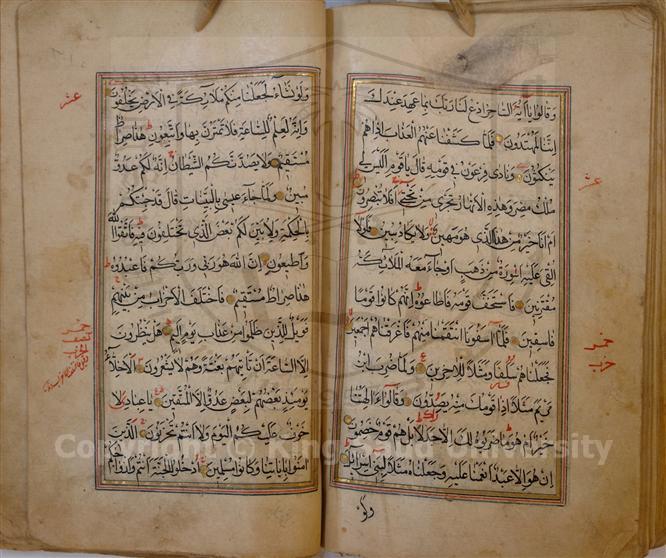 وقالوا يا أيه الساحر ادع لنا ربك بما عهد عندك
اننا لمهتدون فلما كشفنا عنهم العذاب اذا هم
ينكثون ونادى فرعون في قومه قال يا قوم اليس لي
ملك مصر وهذه الانهار تجري من تحتي افلا تبصرون
ام انا خير من هذا الذي هو مهين ولا يكاد يبين فلولا
القي عليه اسورة من ذهب او جاء معه الملائكة
مقترنين فاستخف قومه فاطاعوه انهم كانوا قوما
فاسقين فلما آسفونا انتقمنا منهم فاغرقناهم اجمعين
فجعلناهم سلفا ومثلا للاخرين ولما ضرب ابن
مريم مثلا اذا قومك منه يصدون وقالوا ءالهتنا
خير ام هو ما ضربوه لك الا جدلا بل هم قوم خصمون
ان هو الا عبد انعمنا عليه وجعلناه مثلا لبني اسرائيل
ولو
عشر
حزب
ولو نشاء لجعلنا منكم ملائكة في الارض يخلفون
وانه لعلم للساعة فلا تمترن بها واتبعون هذا صراط
مستقيم ولا يصدنكم الشيطان انه لكم عدو
مبين ولما جاء عيسى بالبينات قال قد جئتكم
بالحكمة ولابين لكم بعض الذي تختلفون فيه فاتقوا الله
واطيعون ان الله هو ربي وربكم فاعبدوه
هذا صراط مستقيم فاختلف الاحزاب من بينهم
فويل للذين ظلموا من عذاب يوم اليم هل ينظرون
الا الساعة ان تاتيهم بغتة وهم لا يشعرون الاخلاء
يومئذ بعضهم لبعض عدو الا المتقين يا عباد لا
خوف عليكم اليوم ولا انتم تحزنون الذين
امنوا باياتنا وكانوا مسلمين ادخلوا الجنة انتم وازواجكم
عشر
Copyright © King Saud University